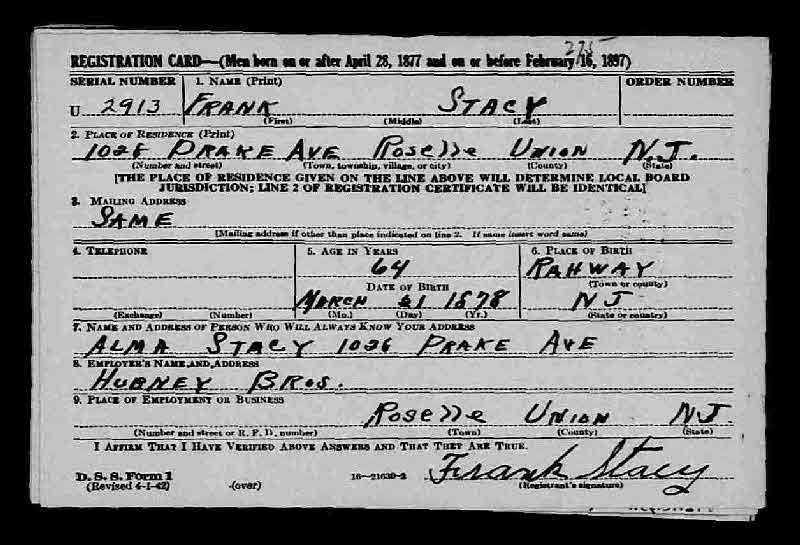 275
REGISTRATION CARD—(Men born on or after April 28, 1877 and on or before February 16, 1897)
SERIAL NUMBER 1. NAME (Print) ORDER NUMBER
U 2913 FRANK STACY
(First) (Middle) (Last)
2. PLACE OF RESIDENCE (Print)
1026 DRAKE AVE Roselle UNION N.J.
(Number and street) (Town, township, village, or city) (County) (State)
[THE PLACE OF RESIDENCE GIVEN ON THE LINE ABOVE WILL DETERMINE LOCAL BOARD
JURISDICTION; LINE 2 OF REGISTRATION CERTIFICATE WILL BE IDENTICAL]
3. MAILING ADDRESS
SAME
[Mailing address if other than place indicated on line 2. If same insert word same]
4. TELEPHONE 5. AGE IN YEARS 6. PLACE OF BIRTH
64 RAHWAY
DATE OF BIRTH (Town or county)
MARCH 1878 NJ
(Exchange) (Number) (Mo.) (Day) (Yr.) (State or country)
7. NAME AND ADDRESS OF PERSON WHO WILL ALWAYS KNOW YOUR ADDRESS
ALMA STACY 1026 DRAKE AVE
8. EMPLOYER'S NAME AND ADDRESS
HUBNEY BROS.
9. PLACE OF EMPLOYMENT OR BUSINESS
Roselle UNION NJ.
(Number and street or R. F. D. number) (Town) (County) (State)
I AFFIRM THAT I HAVE VERIFIED ABOVE ANSWERS AND THAT THEY ARE TRUE.
Frank Stacy
D. S. S. Form 1 16—21630-2 (Registrant's signature)
(Revised 4-1-42) (over)